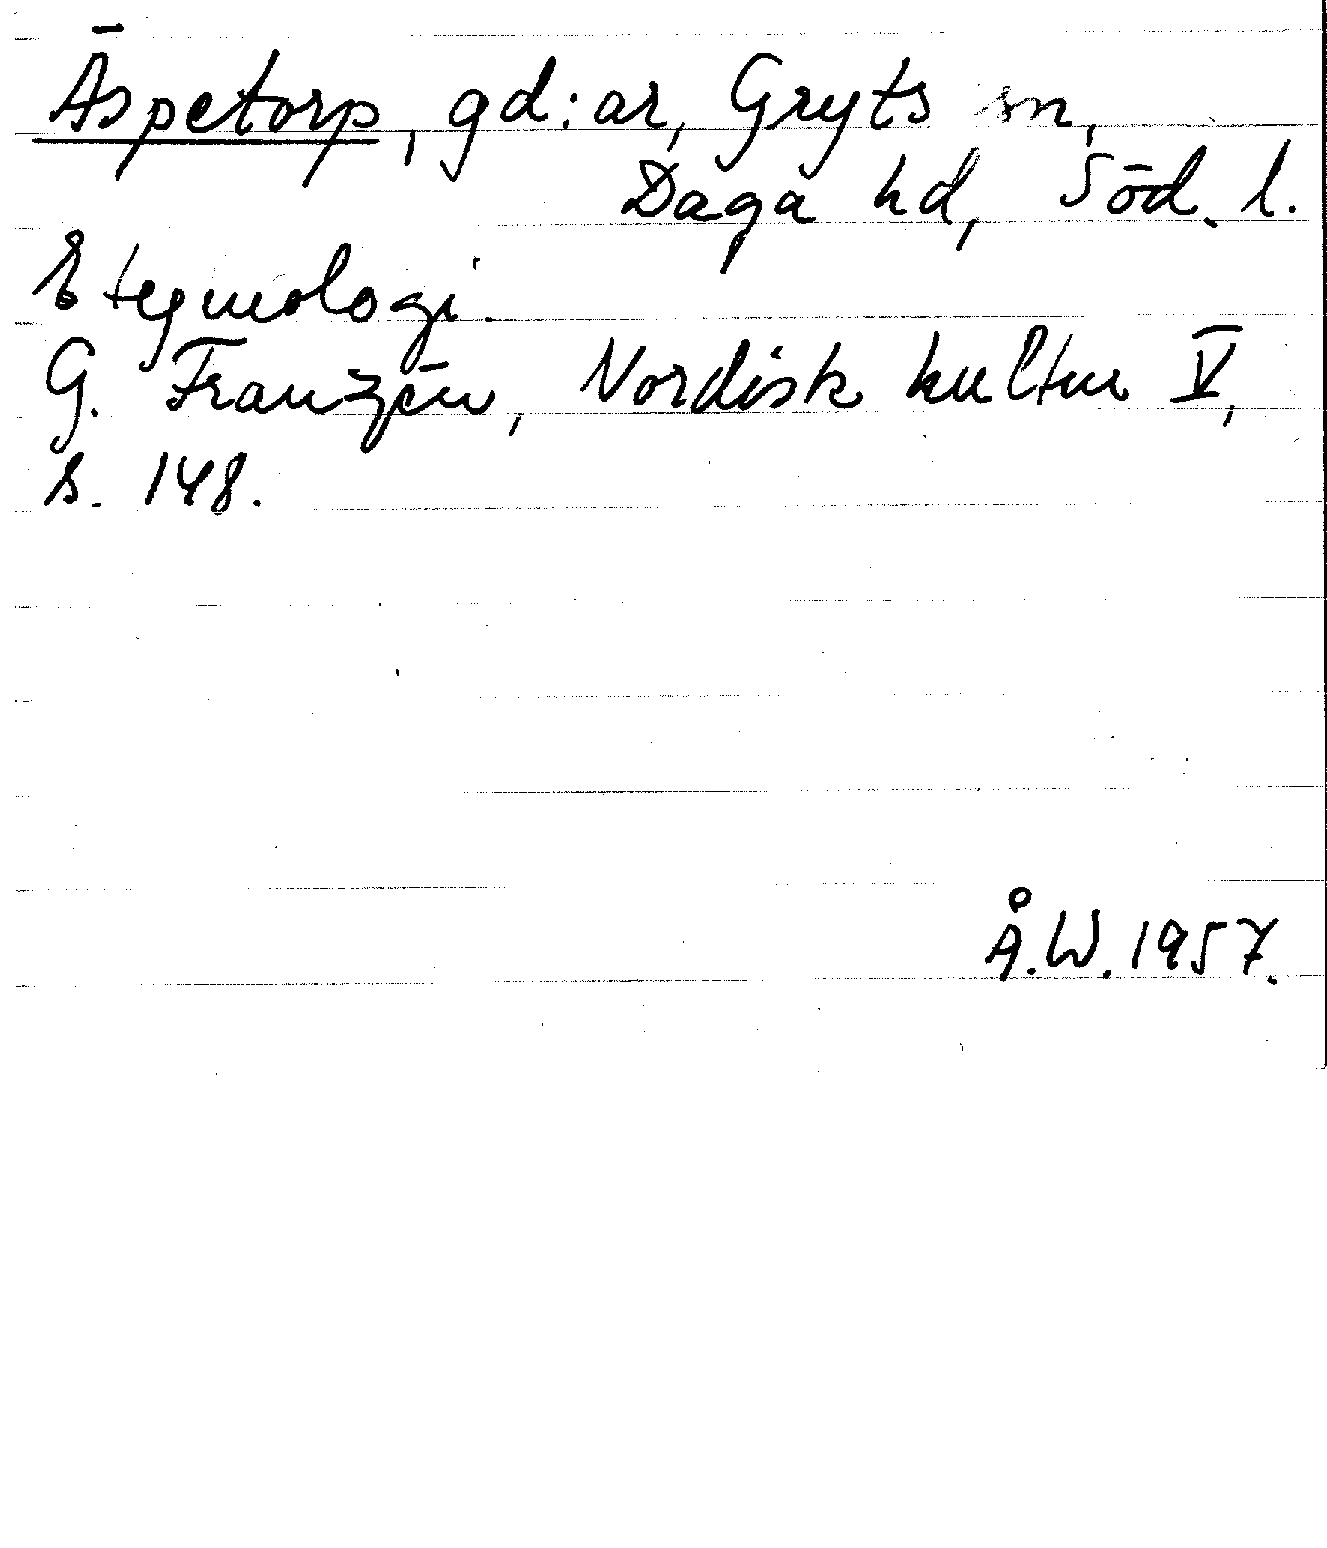 Äspetorp, gd:ar, Gryts sn,
Daga hd, Söd. l.
Etymologi.
G. Franzén, Nordisk kultur V,
s. 148.
Å.W. 1957.